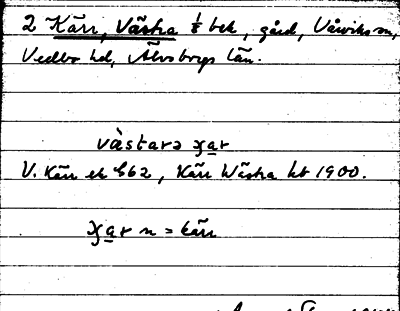 2 Kärr, Västra ⅛ bek, gård, Vårviks sn,
Vedbo hd, Älvsborgs län.
västarə
V. Kärr ek 862, Kärr Wästra kb 1900.
n = kärr